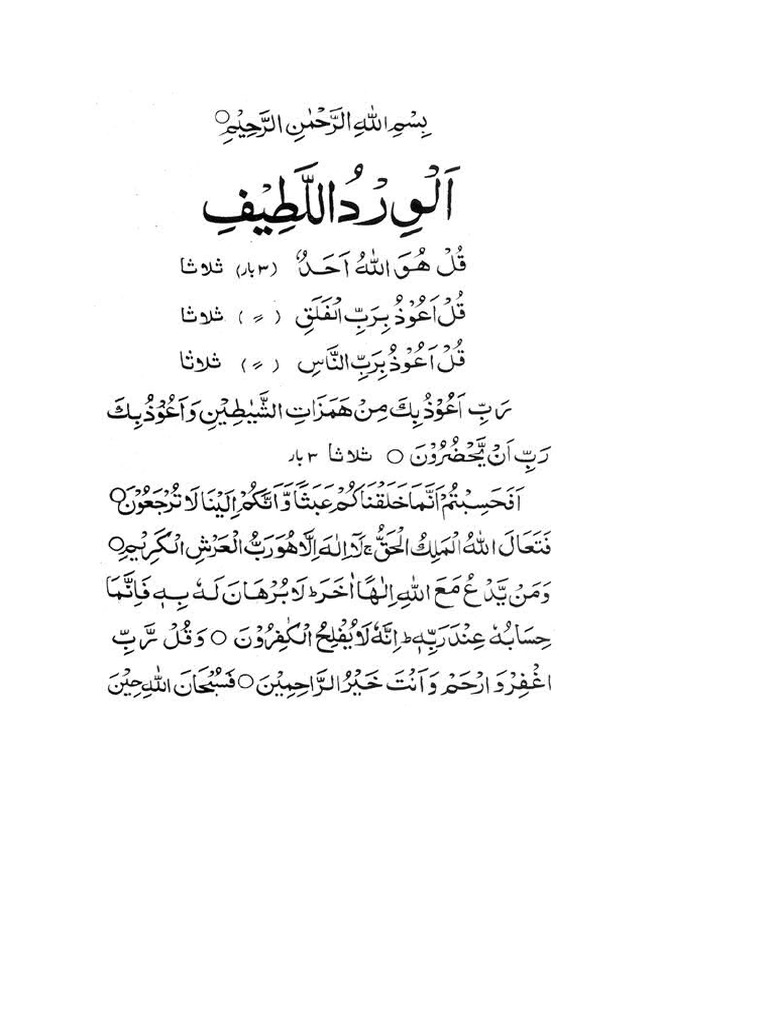 بِسْمِ اللهِ الرَّحْمٰنِ الرَّحِيْمِ○
اَلْوِرْدُ اللَّطِيْفِ
قُلْ هُوَ اللهُ اَحَدٌ (۳ بار) ثلاثا
قُلْ اَعُوْذُ بِرَبِّ الْفَلَقِ ( 〃 ) ثلاثا
قُلْ اَعُوْذُ بِرَبِّ النَّاسِ ( 〃 ) ثلاثا
رَبِّ اَعُوْذُ بِكَ مِنْ هَمَزَاتِ الشَّيٰطِيْنِ وَاَعُوْذُ بِكَ
رَبِّ اَنْ يَّحْضُرُوْنَ ○ ثلاثا ۳ بار
اَفَحَسِبْتُمْ اَنَّمَا خَلَقْنَاكُمْ عَبَثًا وَّاَنَّكُمْ اِلَيْنَا لَا تُرْجَعُوْنَ○
فَتَعَالَ اللهُ الْمَلِكُ الْحَقُّ ۚ لَآ اِلٰهَ اِلَّا هُوَ رَبُّ الْعَرْشِ الْكَرِيْمِ○
وَمَنْ يَّدْعُ مَعَ اللهِ اِلٰهًا اٰخَرَ ۙ لَا بُرْهَانَ لَهٗ بِهٖ فَاِنَّمَا
حِسَابُهٗ عِنْدَ رَبِّهٖ ؕ اِنَّهٗ لَا يُفْلِحُ الْكٰفِرُوْنَ ○ وَقُلْ رَّبِّ
اغْفِرْ وَارْحَمْ وَاَنْتَ خَيْرُ الرَّاحِمِيْنَ ○ فَسُبْحَانَ اللهِ حِيْنَ